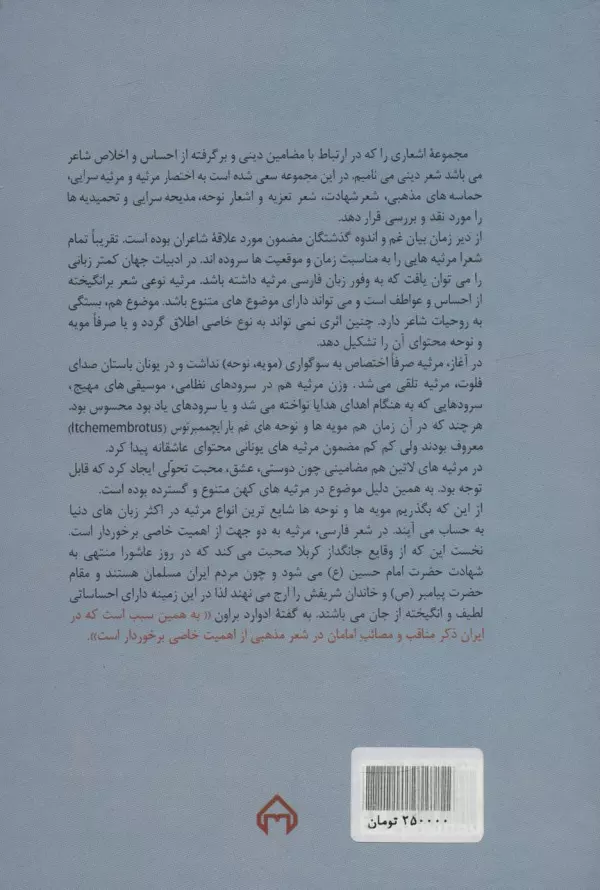 مجموعهٔ اشعاری را که در ارتباط با مضامین دینی و برگرفته از احساس و اخلاص شاعر
می باشد شعر دینی می نامیم. در این مجموعه سعی شده است به اختصار مرثیه و مرثیه سرایی،
حماسه های مذهبی، شعر شهادت، شعر تعزیه و اشعار نوحه، مدیحه سرایی و تحمیدیه ها
را مورد نقد و بررسی قرار دهد.
از دیر زمان بیان غم و اندوه گذشتگان مضمون مورد علاقهٔ شاعران بوده است. تقریباً تمام
شعرا مرثیه هایی را به مناسبت زمان و موقعیت ها سروده اند. در ادبیات جهان کمتر زبانی
را می توان یافت که به وفور زبان فارسی مرثیه داشته باشد. مرثیه نوعی شعر برانگیخته
از احساس و عواطف است و می تواند دارای موضوع های متنوع باشد. موضوع هم، بستگی
به روحیات شاعر دارد. چنین اثری نمی تواند به نوع خاصی اطلاق گردد و یا صرفاً مویه
و نوحه محتوای آن را تشکیل دهد.
در آغاز، مرثیه صرفاً اختصاص به سوگواری (مویه، نوحه) نداشت و در یونان باستان صدای
فلوت، مرثیه تلقی می شد. وزن مرثیه هم در سرودهای نظامی، موسیقی های مهیج،
سرودهایی که به هنگام اهدای هدایا نواخته می شد و یا سرودهای یاد بود محسوس بود.
هر چند که در آن زمان هم مویه ها و نوحه های غم بار ایچممبرتوس (Itchemembrotus)
معروف بودند ولی کم کم مضمون مرثیه های یونانی محتوای عاشقانه پیدا کرد.
در مرثیه های لاتین هم مضامینی چون دوستی، عشق، محبت تحوّلی ایجاد کرد که قابل
توجه بود. به همین دلیل موضوع در مرثیه های کهن متنوع و گسترده بوده است.
از این که بگذریم مویه ها و نوحه ها شایع ترین انواع مرثیه در اکثر زبان های دنیا
به حساب می آیند. در شعر فارسی، مرثیه به دو جهت از اهمیت خاصی برخوردار است.
نخست این که از وقایع جانگداز کربلا صحبت می کند که در روز عاشورا منتهی به
شهادت حضرت امام حسین (ع) می شود و چون مردم ایران مسلمان هستند و مقام
حضرت پیامبر (ص) و خاندان شریفش را ارج می نهند لذا در این زمینه دارای احساساتی
لطیف و انگیخته از جان می باشند. به گفتهٔ ادوارد براون «به همین سبب است که در
ایران ذکر مناقب و مصائب امامان در شعر مذهبی از اهمیت خاصی برخوردار است».
۲۵۰۰۰۰ تومان